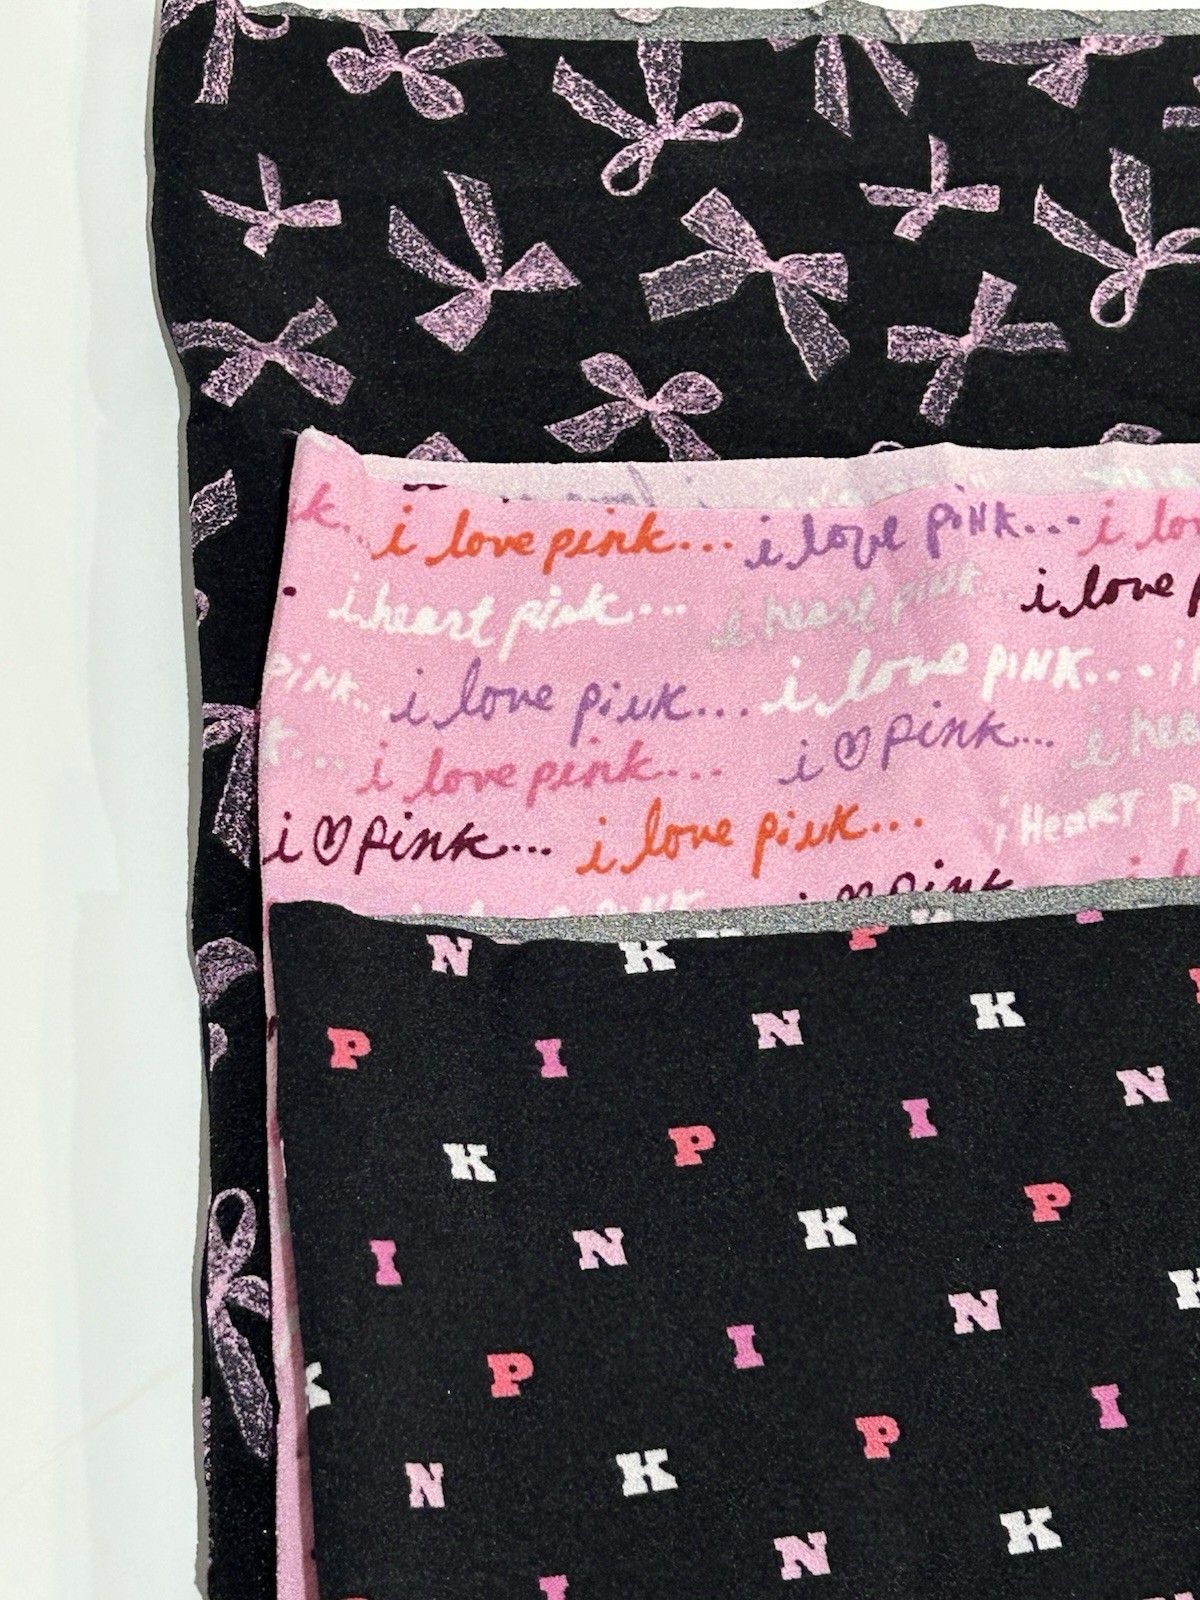 k... i love pink... i love piNK... i lo
i heart pink... i heart pink... i love p
piNK... i love piuk... i love piNK... i
k... i love pink... i ♡ pink... i hea
i ♡ pink... i love piuk... i HeaRT P
i ♡ pink
N K P
P I N K
K P I N
I N K P
P I N K
N K P I
N K
I